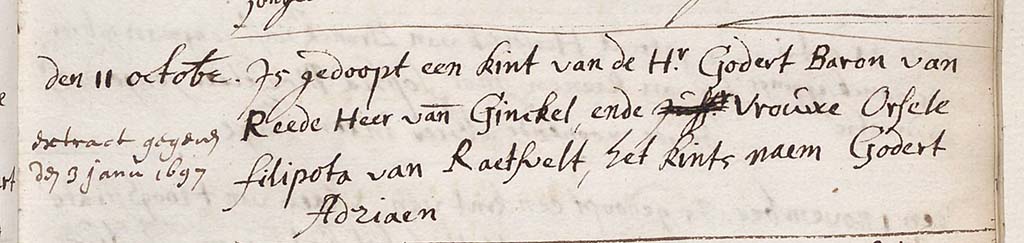 den 11 octobr. Js gedoopt een kint van de Hr Godert Baron van
Reede Heer van Ginckel, ende Vrouwe Orsele
filipota van Raetfvelt, het kints naem Godert
Adriaen
extract gegeven
den 3 janu 1697